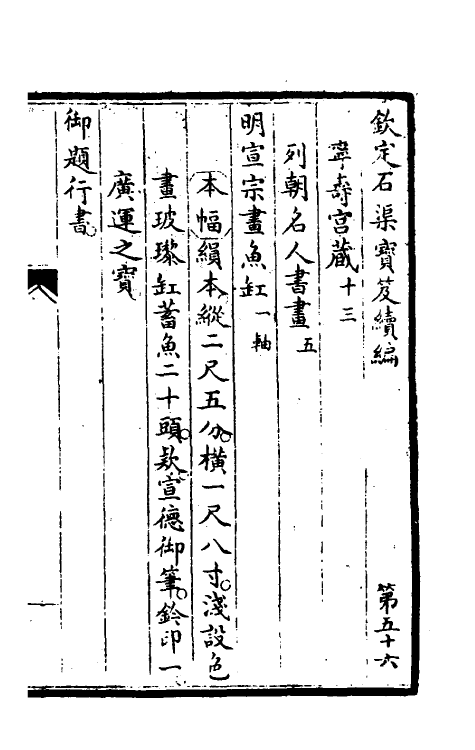 欽定石渠寶笈續編 第五十六
寧壽宮藏十三
列朝名人書畫五
明宣宗畫魚缸一軸
本幅絹本縱二尺五分橫一尺八寸淺設色
畫玻瓈缸蓄魚二十頭款宣德御筆鈐印一
廣運之寶
御題行書